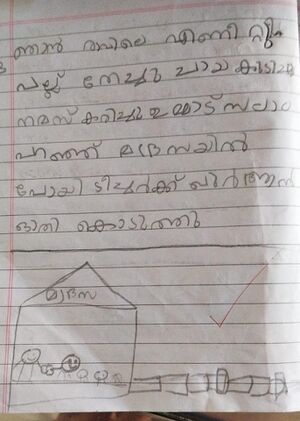 ഞാൻ രാവിലെ എണീറ്റു
പല്ല് തേച്ചു ചായ കുടിച്ചു
നമസ്കരിച്ചു ഉമ്മാട് സലാം
പറഞ്ഞ് മദ്രസയിൽ
പോയി ടീച്ചർക്ക് ഖുർആൻ
ഓതി കൊടുത്തു
മദ്രസ